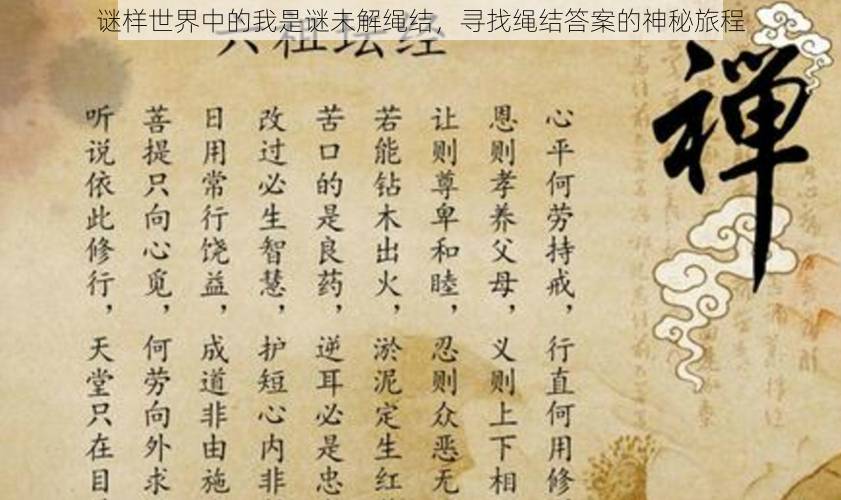 谜样世界中的我是谜未解绳结，寻找绳结答案的神秘旅程
六祖坛经
禅
心平何劳持戒，行直何用修
恩则孝养父母，义则上下相
让则尊卑和睦，忍则众恶无
若能钻木出火，淤泥定生红
苦口的是良药，逆耳必是忠
改过必生智慧，护短心内非
日用常行饶益，成道非由施
菩提只向心觅，何劳向外求
听说依此修行，天堂只在目